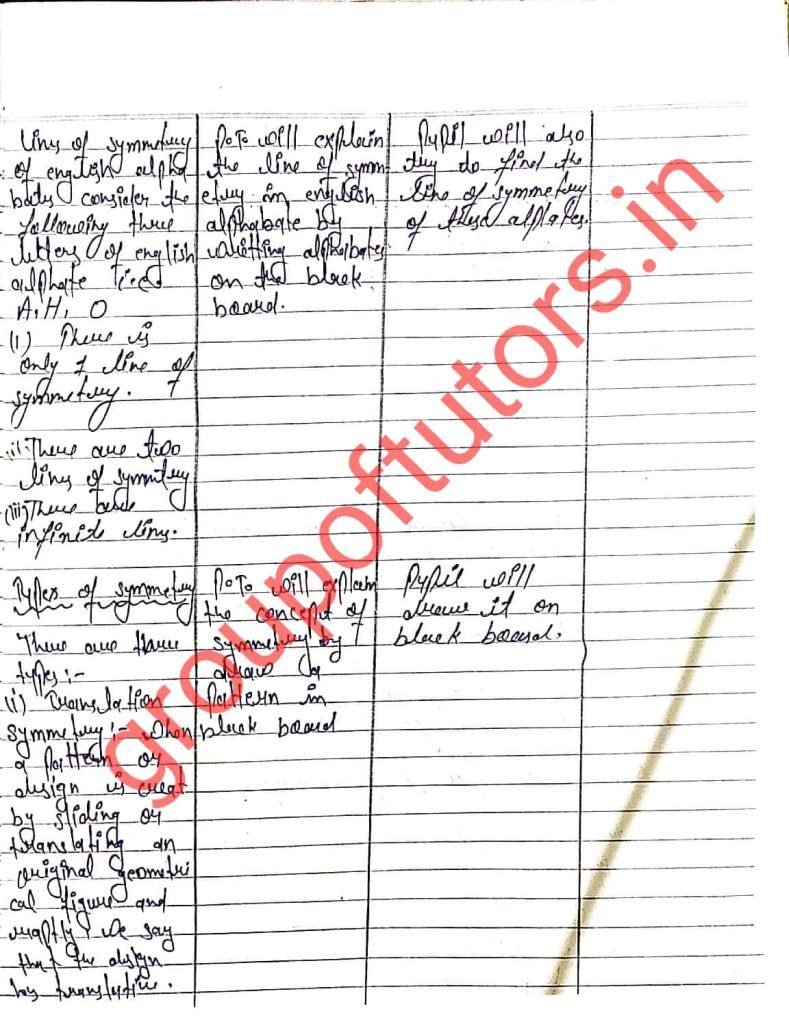 Lins of symmetry
of english alpha
bats consider the
following three
letters of english
alphate i.e.
A, H, O
(i) There is
only 1 line of
symmetry.
(ii) There are two
lins of symmtry
(iii) There
infinite lins.
Types of symmetry
There are three
types:-
(i) Translation
symmetry:- When
a Pattern or
design is creat
by sliding or
translating an
original geometri
cal figure and
we say
that the design
translative.
P.T. will explain
the line of symm
etry in english
alphabate by
writting alphabates
on the black
board.
P.T. will explain
the concept of
symmetry by
draw a
Pattern in
black board
Pupil will also
try do find the
line of symmetry
of these
Pupil will
draw it on
black board.
groupoftutors.in